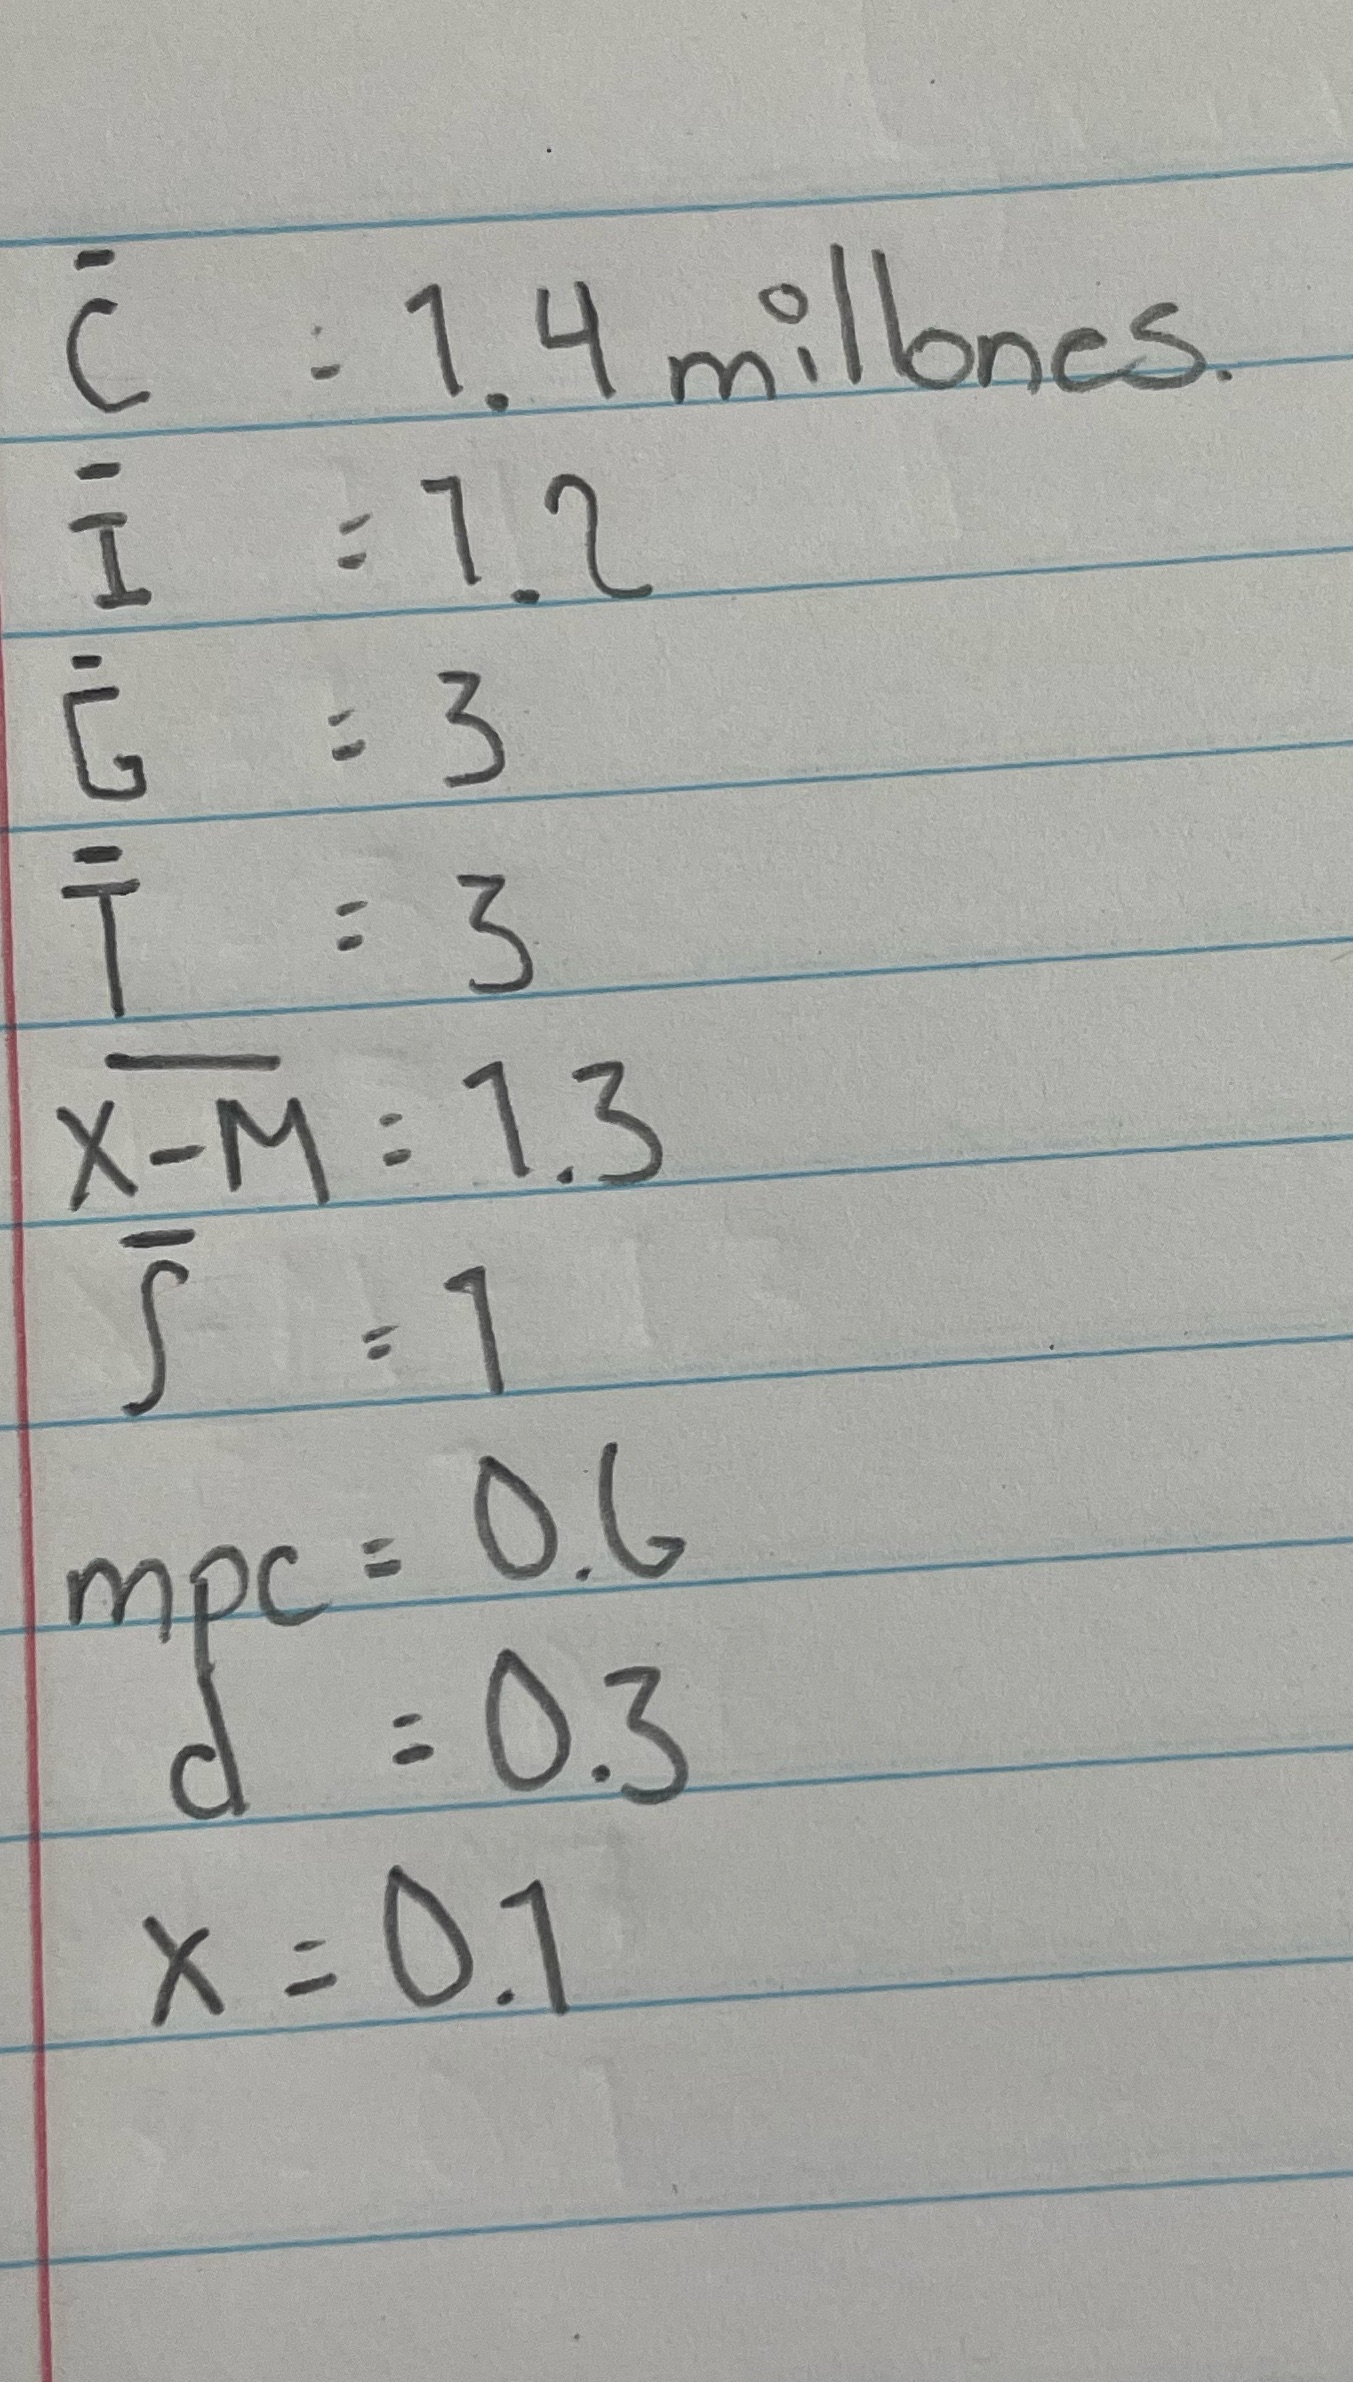 C̄ = 1.4 millones.
Ī = 1.2
Ḡ = 3
T̄ = 3
X̅-̅M̅ = 1.3
f̄ = 1
mpc = 0.6
d = 0.3
x = 0.1